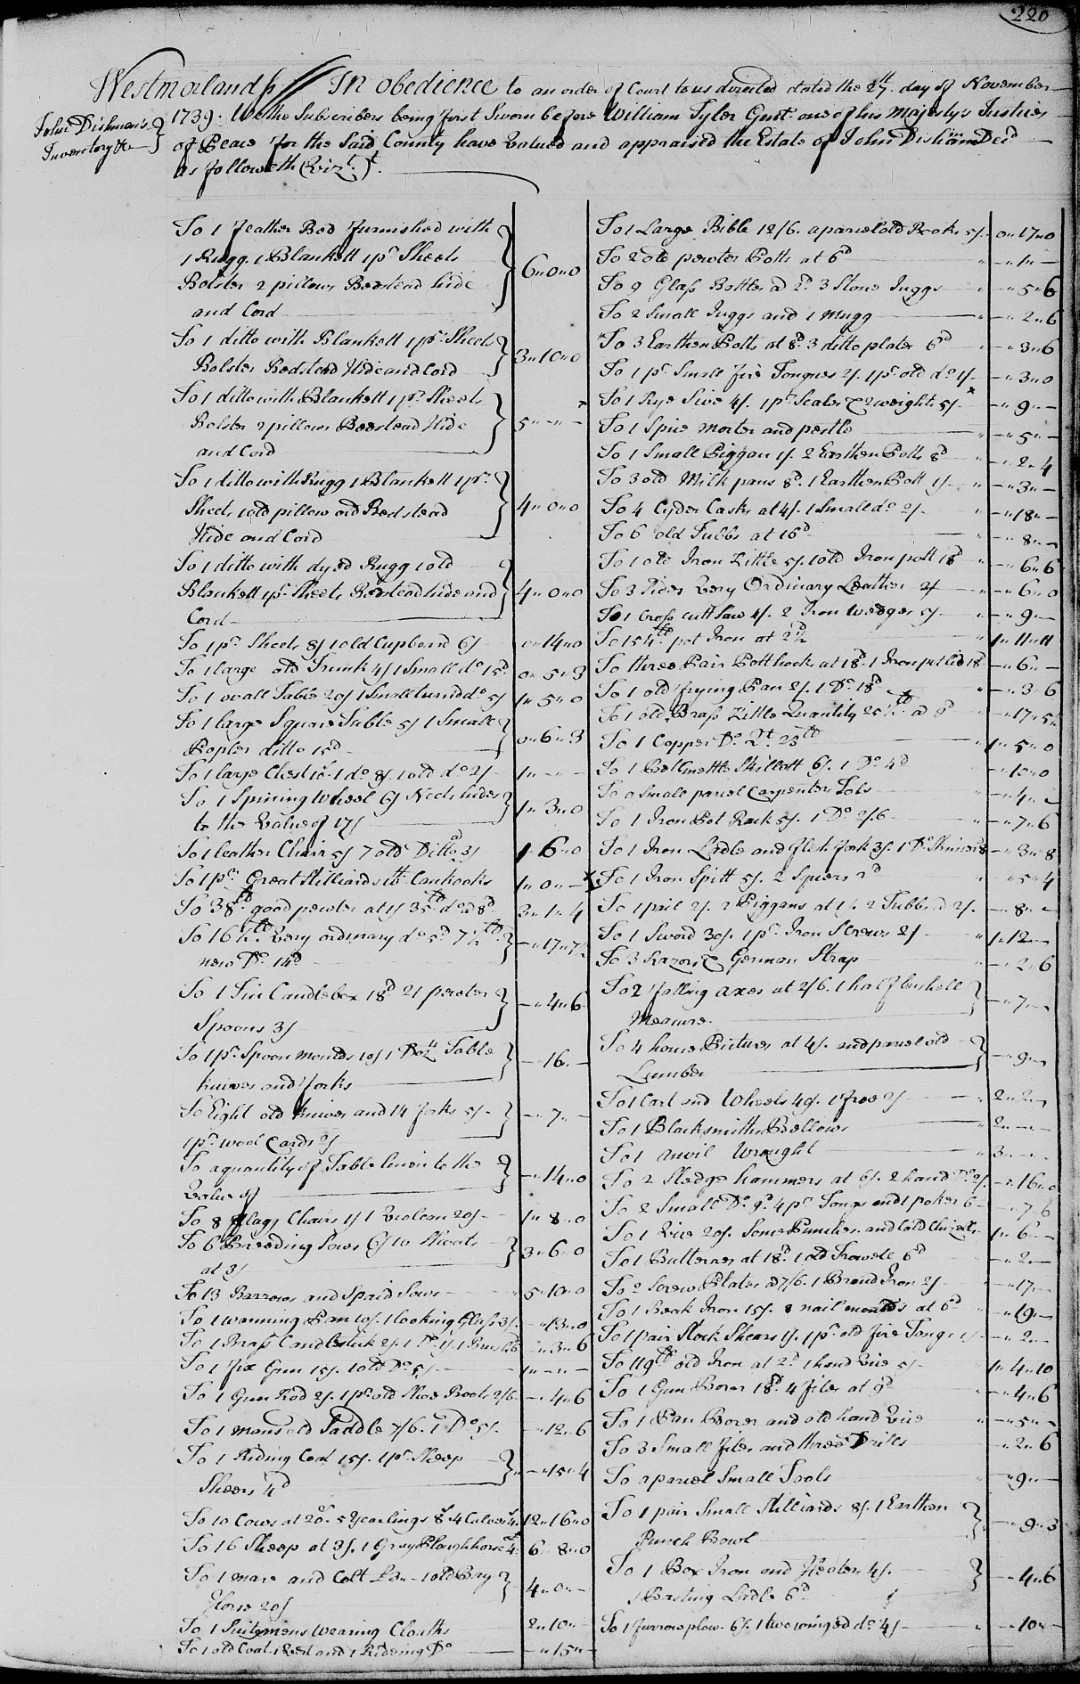 220
Westmorland ss In obedience to an order of Court to us directed dated the 27th day of November
John Dishman's
Inventory &c
1739. We the Subscribers being first Sworn before William Tyler Gent one of his Majestys Justices
of Peace for the Said County have Valued and appraised the Estate of John Dishman Decd
as followeth (Vizt.)
To 1 feather Bed furnished with
1 Rugg 1 Blankett 1 pr Sheets
Bolster 2 pillows Bedstead hide
and Cord 6"0"0
To 1 ditto with Blankett 1 pr Sheets
Bolster Bedstead Hide and Cord 3"10"0
To 1 ditto with Blankett 1 pr Sheets
Bolster 2 pillows Bedstead Hide
and Cord 5"-"-
To 1 ditto with Rugg 1 Blankett 1 pr
Sheets 1 old pillow and Bedstead
Hide and Cord 4"0"0
To 1 ditto with dyed Rugg 1 old
Blankett 1 pr Sheets Bedstead hide and
Cord 4"0"0
To 1 pr Sheets 8/ 1 old Cupboard 6/ 0"14"0
To 1 large old Trunk 4/ 1 Small do 15d 0"5"3
To 1 ovall Table 20/ 1 Small turnd do 5/ 1"5"0
To 1 large Square Table 5/ 1 Small
Popler ditto 15d 0"6"3
To 1 large Chest 10/ 1 do 8/ 1 old do 2/ 1"-"-
To 1 Spining Wheel 6/ Neck hides
to the Value of 17/ 1"3"0
To 1 leather Chair 5/ 7 old Ditto 3/ 1"6"0
To 1 pr Great Stilliards with Canhooks 1"0"-
To 38lb good pewter at 1/ 35lb do a 8d 3"1"4
To 16½lb Very ordinary do 5d 7½lb
new Do 14d -"17"7½
To 1 Tin Candlebox 18d 21 pewter
Spoons 3/ -"4"6
To 1 pr Spoon moulds 10/ 1 Dozn Table
knives and forks -"16"-
To Eight old knives and 14 forks 5/
1 pr wool Cards 2/ -"7"-
To a quantity of Table linen to the
Value of -"14"0
To 8 flagg Chairs 1/ 1 Violeen 20/ 1"8"0
To 6 Breeding Sows 6/ 10 Shoats
at 3/ 3"6"0
To 13 Barrows and Spaid Sows 5"10"0
To 1 warming Pan 10/ 1 looking Glass 3/ -"13"0
To 1 Brass Candlestick 2/ 1 Do 1/ -"3"6
To 1 fix Gun 15/ 1 old Do 5/ 1"-"-
To 1 Gun Rod 2/ 1 pr old Shoe Boots 2/6 -"4"6
To 1 mans old Saddle 7/6 1 Do 5/ -"12"6
To 1 Riding Coat 15/ 1 pr Sheep
Shears 4d -"15"4
To 10 Cows at 20s 5 Yearlings 8s 4 Calves 4s 12"16"0
To 16 Sheep at 3/ 1 Gray Ploughhorse 6"8"0
To 1 mare and Colt £3"- 1 old Bay
Horse 20/ 4"0"-
To 1 Suit mens Wearing Cloaths 2"10"-
To 1 old Coat 1 Vest and 1 Rideing Do -"15"-
To 1 Large Bible 12/6 a parcel old Books 5/ 0"17"0
To 2 old pewter Potts at 6d -"1"-
To 9 Glass Bottles a 2d 3 Stone Juggs -"5"6
To 2 Small Juggs and 1 mugg -"2"6
To 3 Earthen Potts at 8d 3 ditto plates 6d -"3"6
To 1 pr Small fire Tongues 2/ 1 pr old do 1/ -"3"0
To 1 Rye Sive 4/ 1 pr Scales & 2 weights 5/ -"9"-
To 1 Spice morter and pestle -"5"-
To 1 Small Piggan 1/ 2 Earthen Potts 8d -"2"4
To 3 old Milk pans 8d 1 Earthen Pott 1/ -"3"-
To 4 Cyder Casks at 4/ 1 Small do 2/ -"18"-
To 6 old Tubbs at 16d -"8"-
To 1 old Iron Kittle 5/ 1 old Iron pott 18d -"6"6
To 3 Sides Very Ordinary Leather 2/ -"6"0
To 1 Cross cutt Saw 4/ 2 Iron Wedges 5/ -"9"-
To 154lb pot Iron at 2½ 1"11"11
To three Pair Pott hooks at 18d 1 Iron pot lid 18d -"6"-
To 1 old frying Pan 2/ 1 Do 18d -"3"6
To 1 old Brass Kittle Quantity 25½lb a 8d -"17"5
To 1 Copper Do Qt 25lb 1"5"0
To 1 Bellmettle Skillett 6/ 1 Do 4d -"10"0
To a Small parcel Carpenters Tols -"4"-
To 1 Iron Pot Rack 5/ 1 Do 2/6 -"7"6
To 1 Iron Ladle and flesh fork 3/ 1 Do Skimer 8 -"3"8
To 1 Iron Spitt 5/ 2 2d -"5"4
To 1 pail 2/ 2 Piggans at 1/ 2 Tubbs a 2/ -"8"-
To 1 Sword 30/ 1 pr Iron Screws 2/ 1"12"-
To 3 Razors & German Strap -"2"6
To 2 falling axes at 2/6 1 half bushell
Measure -"7"-
To 4 home Pictures at 4/ and parcel old
Lumber -"9"-
To 1 Cart and Wheels 40/ 1 froe 2/ 2"2"-
To 1 Blacksmiths Bellows 2"-"-
To 1 anvil Wrought 3"-"-
To 2 Sledge hammers at 6/ 2 hand Do 2/ -"16"0
To 2 Small Do 9d 4 pr Tongs and 1 poker 6 -"7"6
To 1 Vice 20/ Some Punches and Cold Chizels 1"6"-
To 1 Butteres at 18d 1 old Trowell 6d -"2"-
To 2 Screw Plates a 7/6 1 Brand Iron 2/ -"17"-
To 1 Beak Iron 15/ 8 nail moulds at 6d -"19"-
To 1 pair Stock Shears 1/ 1 pr old fire Tongs 1/ -"2"-
To 119lb old Iron at 2d 1 hand Vice 5/ 1"4"10
To 1 Gun Borer 18d 4 files at 9d -"4"6
To 1 Pan Borer and old hand Vice -"5"-
To 3 Small files and three Drills -"2"6
To a parcel Small Tools -"9"-
To 1 pair Small Stilliards 8/ 1 Earthen
Punch Bowl -"9"3
To 1 Box Iron and Heaters 4/
1 Basting Ladle 6d -"4"6
To 1 furrow plow 6/ 1 two winged do 4/ -"10"-